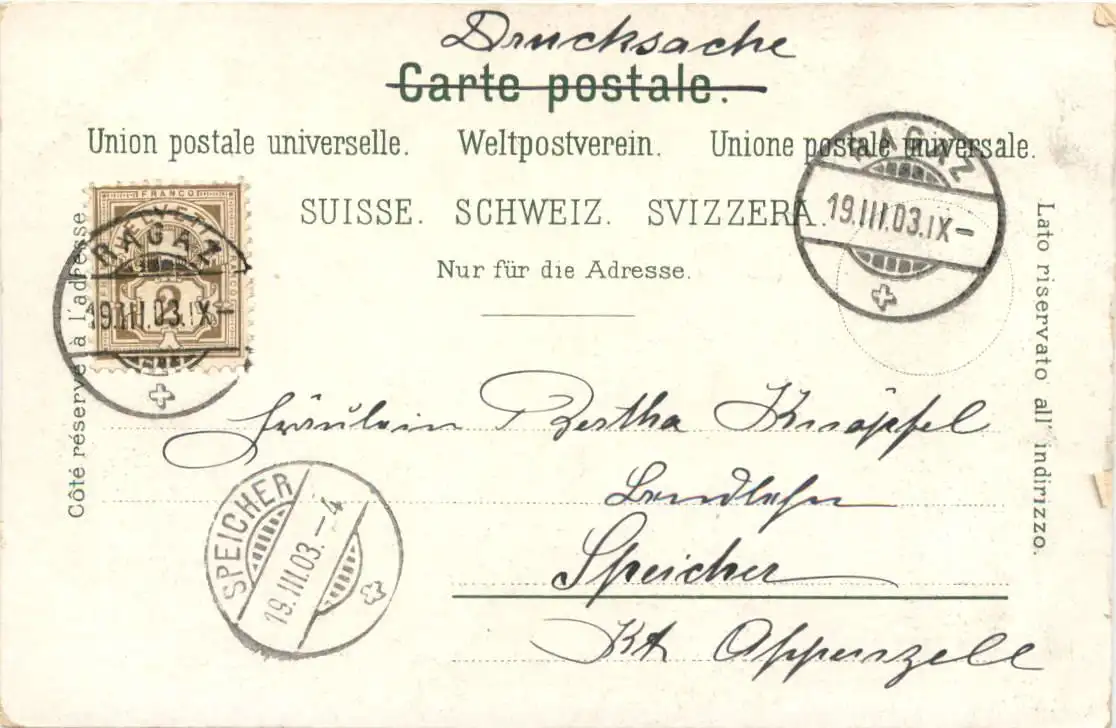 Drucksache
Carte postale.
Union postale universelle. Weltpostverein. Unione postale universale.
SUISSE. SCHWEIZ. SVIZZERA.
Nur für die Adresse.
Côté réservé à l'adresse
Lato riservato all' indirizzo.
FRANCO
HELVETIA
2
RAGAZ
19.III.03.IX–
RAGAZ
19.III.03.IX–
Fräulein Bertha Knöpfel
Bendlehn
Speicher
Kt Appenzell
SPEICHER
19.III.03.–4